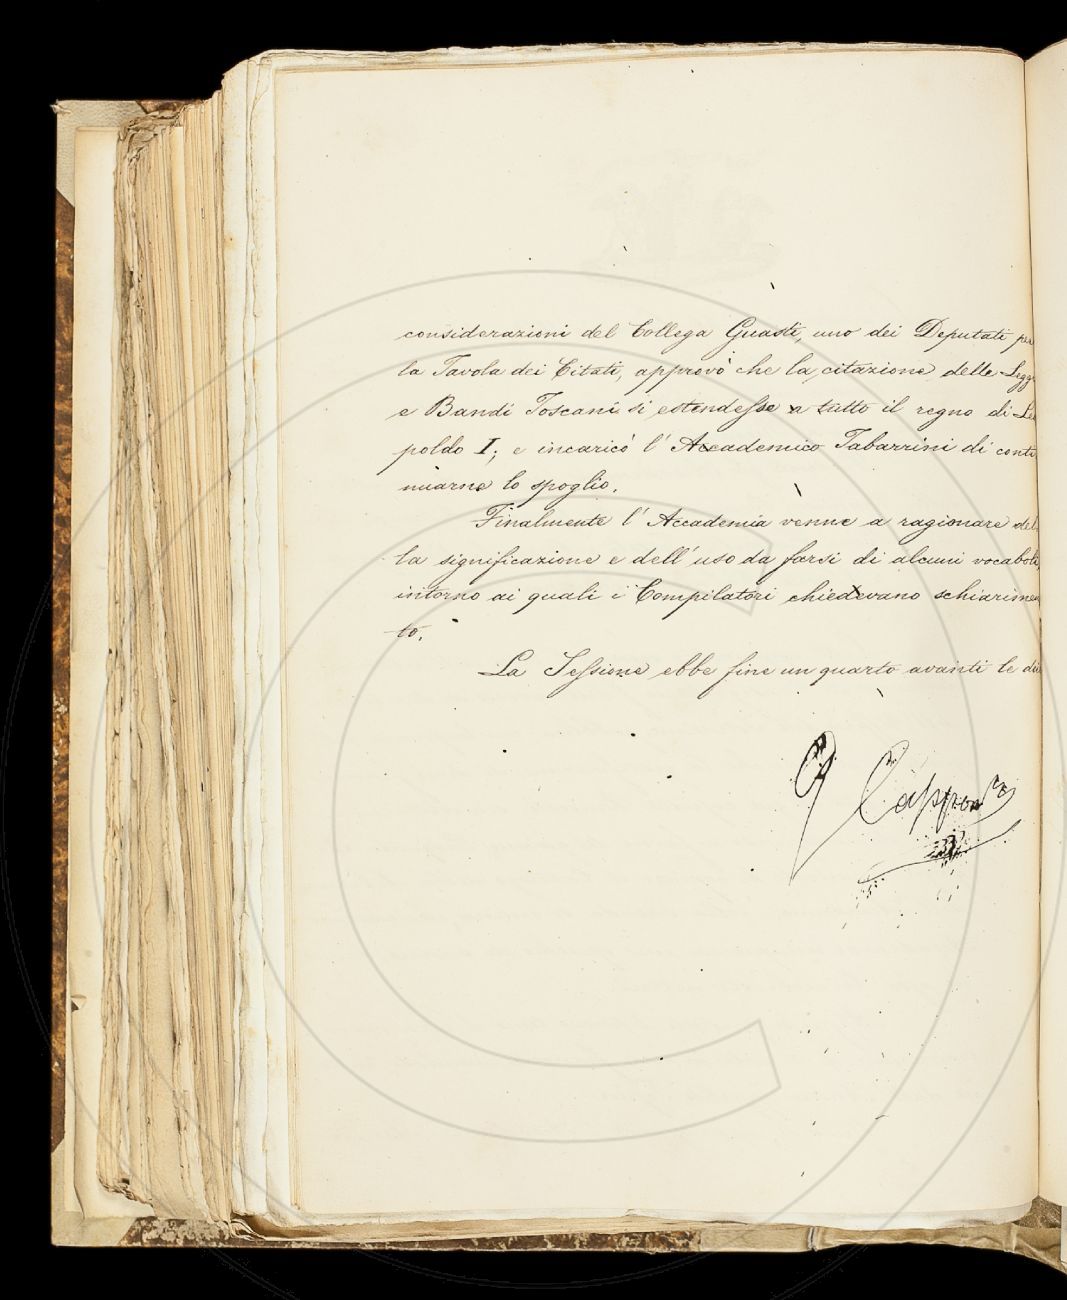 considerazioni del Collega Guasti, uno dei Deputati per
la Tavola dei Citati, approvò che la citazione delle Leggi
e Bandi Toscani si estendesse a tutto il regno di Leo
poldo I; e incaricò l' Accademico Tabarrini di conti
nuarne lo spoglio.
Finalmente l' Accademia venne a ragionare del
la significazione e dell' uso da farsi di alcuni vocaboli,
intorno ai quali i Compilatori chiedevano schiarimen
to.
La Sessione ebbe fine un quarto avanti le
G Capponi